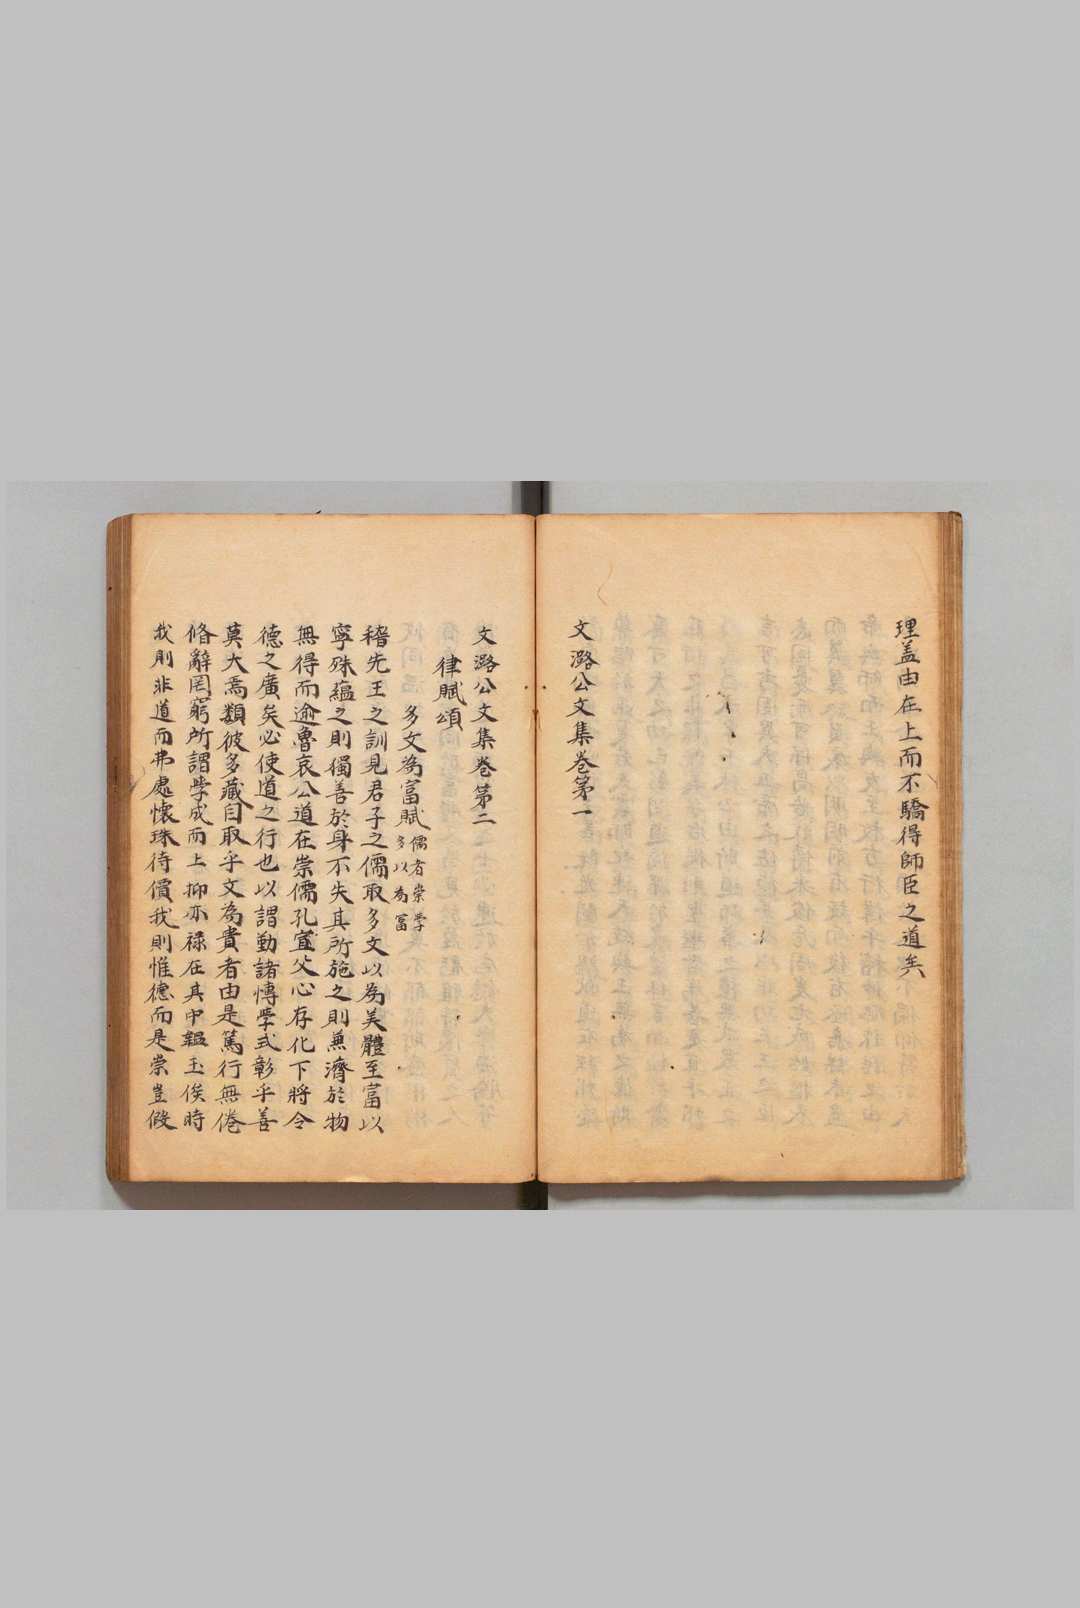 理盖由在上而不驕得師臣之道矣
文潞公文集卷第一
文潞公文集卷第二
律賦頌
多文為富賦儒者崇学多以為冨
稽先王之訓見君子之儒取多文以為美體至富以
寧殊蘊之則獨善於身不失其所施之則兼濟於物
無得而逾魯哀公道在崇儒孔宣父心存化下將令
德之廣矣必使道之行也以謂勤諸慱學式彰乎善
莫大焉類彼多藏曰取乎文為貴者由是篤行無倦
脩辭罔窮所謂學成而上抑亦禄在其中韞玉俟時
我則非道而弗處懷珠待價我則惟德而是崇豈假